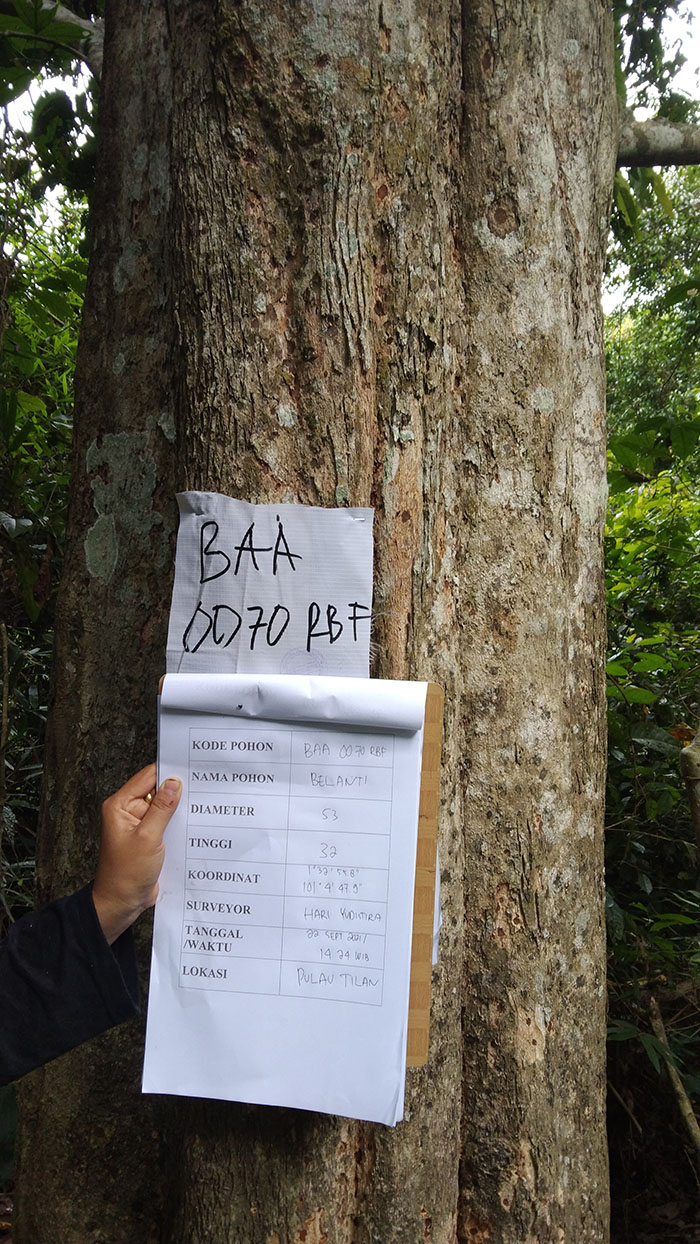 BAA
0070 RBF
KODE POHON BAA 0070 RBF
NAMA POHON BELANTI
DIAMETER 53
TINGGI 32
KOORDINAT
101° 4' 47.9"
SURVEYOR HARI YUDITIRA
TANGGAL 22 SEPT 2017
/WAKTU 14 24 WIB
LOKASI PULAU TILAN